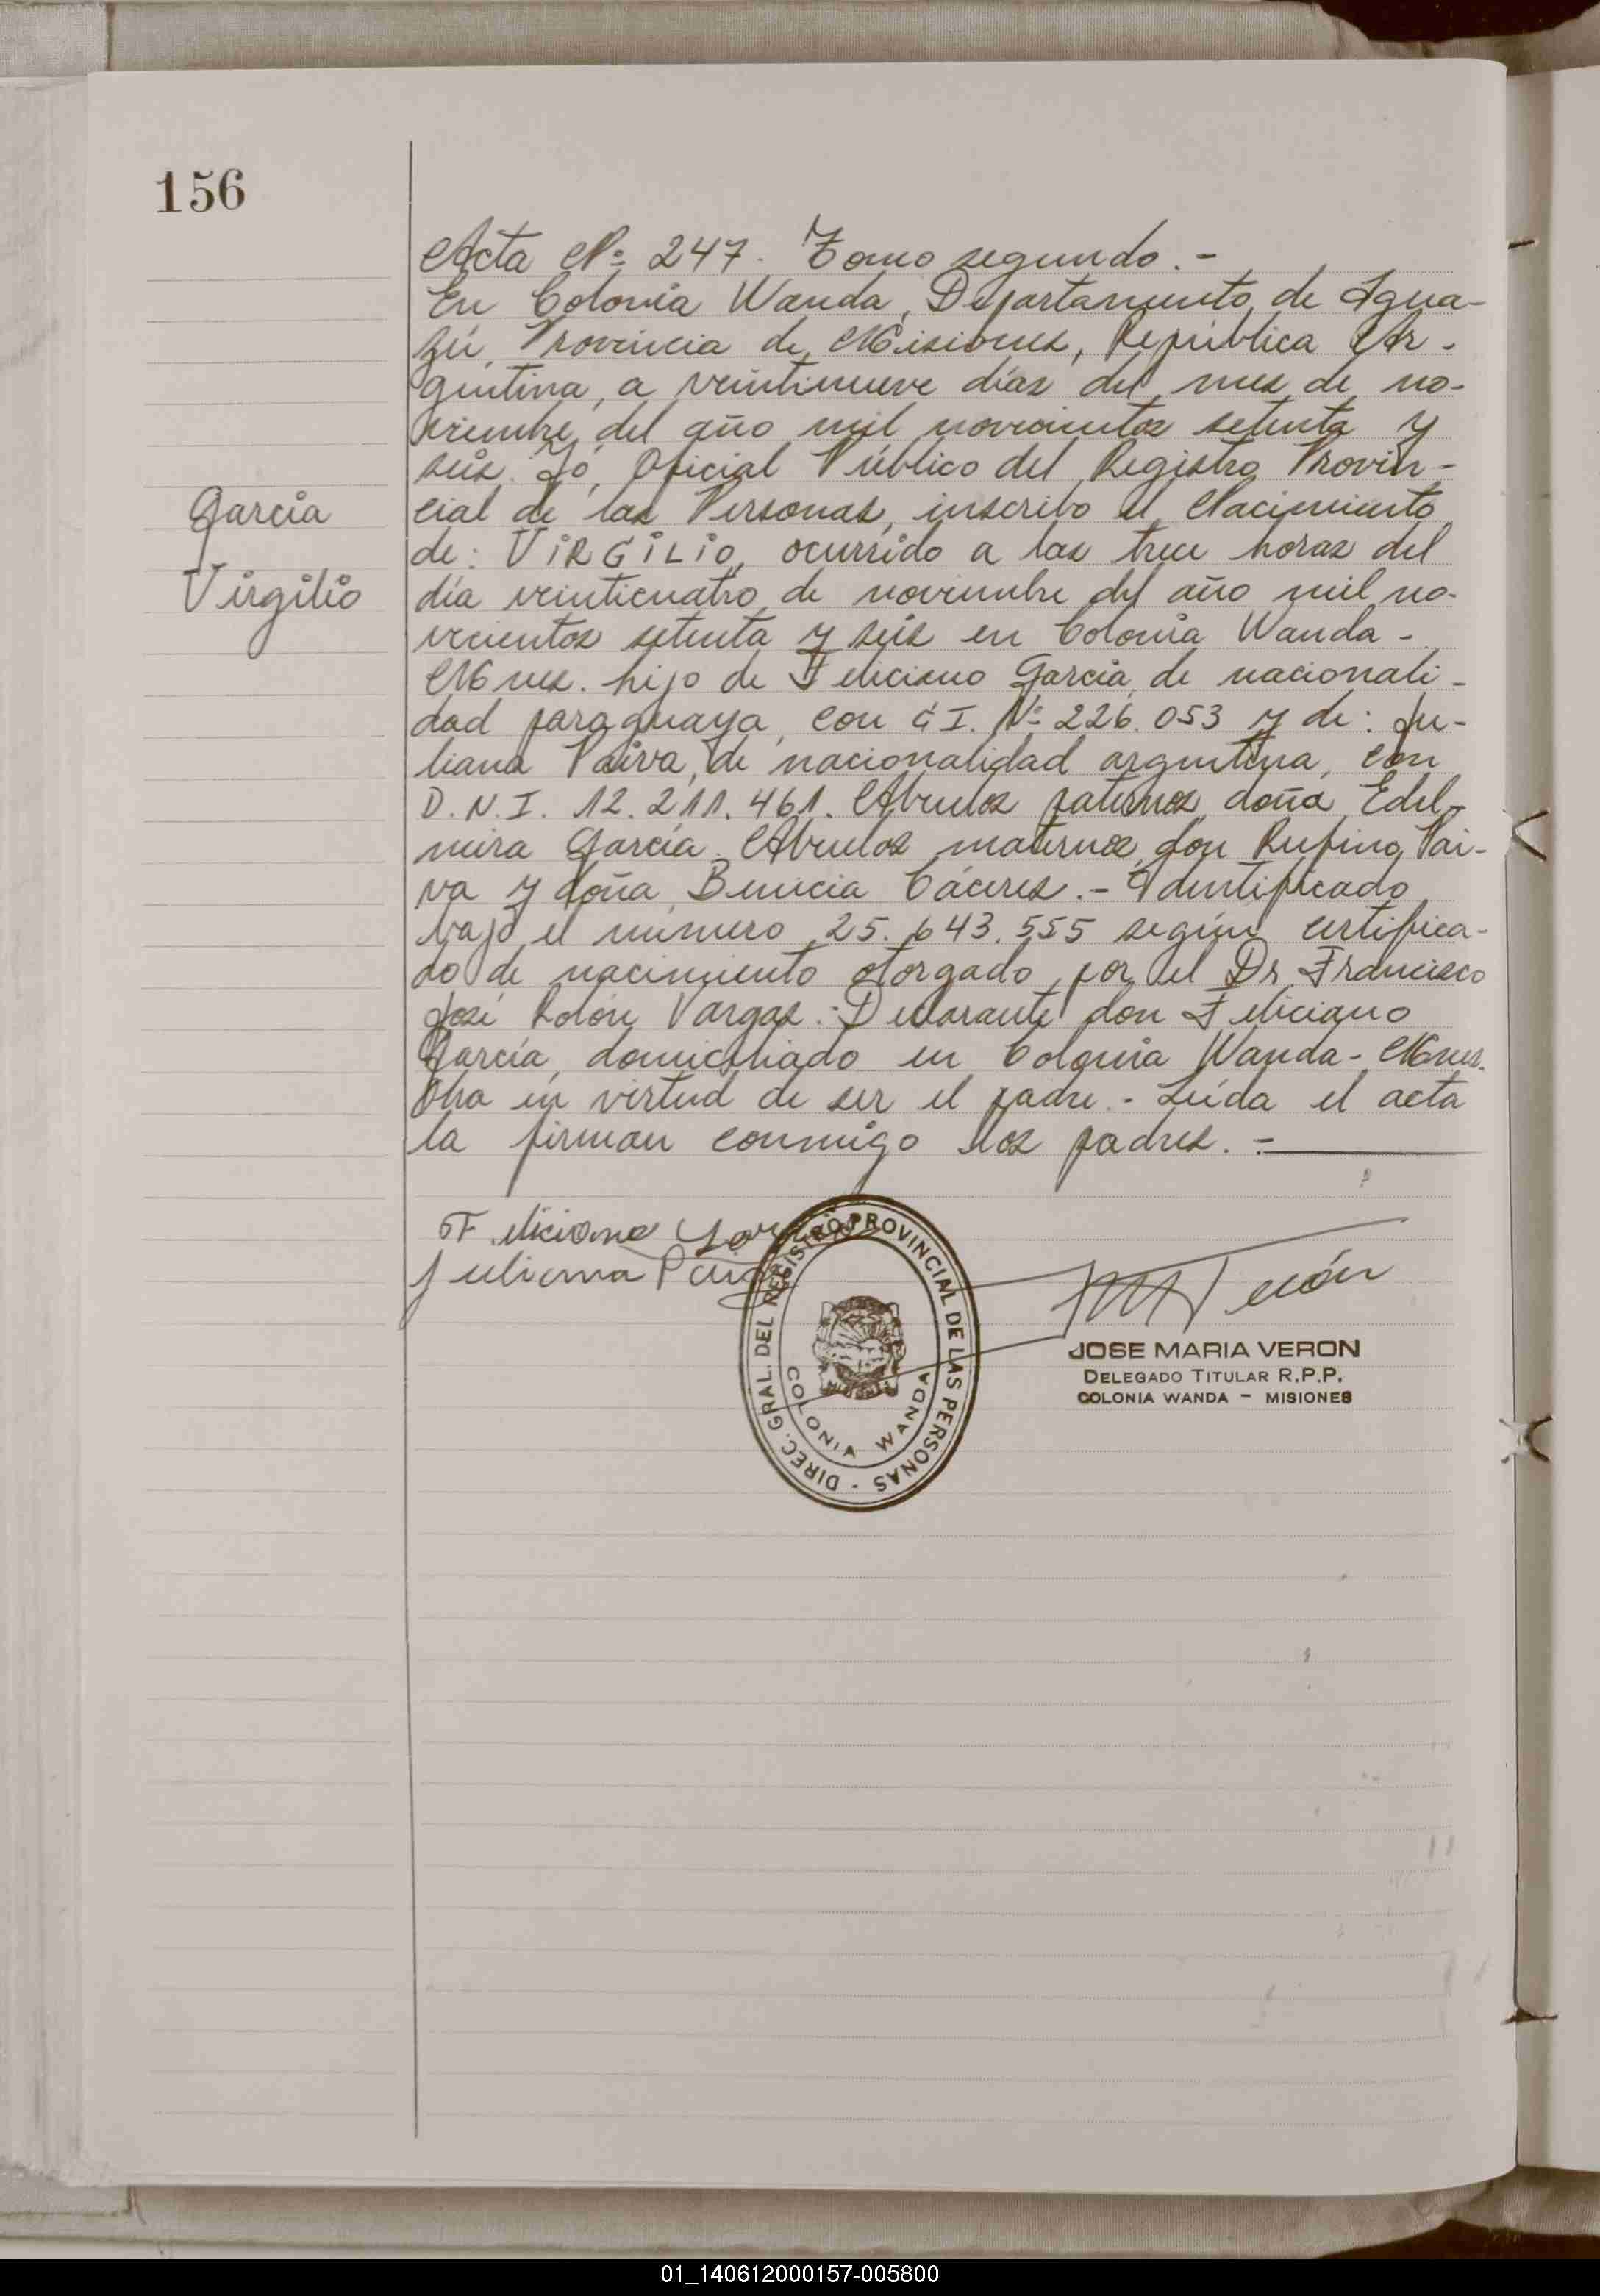 156
Acta Nº 247. Tomo segundo.-
En Colonia Wanda, Departamento de Igua-
zú, Provincia de Misiones, República Ar-
gentina, a veintinueve días del mes de no-
viembre del año mil novecientos setenta y
seis. Yó, Oficial Público del Registro Provin-
cial de las Personas, inscribo el Nacimiento
de: VIRGILIO, ocurrido a las trece horas del
día veinticuatro de noviembre del año mil no-
vecientos setenta y seis en Colonia Wanda-
Mnes. hijo de Feliciano García, de nacionali-
dad paraguaya, con C.I. Nº 226.053 y de: Ju-
liana Paiva, de nacionalidad argentina, con
D.N.I. 12.211.461. Abuelos paternos doña Edel-
mira García. Abuelos maternos don Rufino Pai-
va y doña Benicia Cáceres.- Identificado
bajo el número 25.643.555 según certifica-
do de nacimiento otorgado por el Dr Francisco
José Rolón Vargas. Declarante don Feliciano
García, domiciliado en Colonia Wanda- Mnes.
Obra en virtud de ser el padre.- Leída el acta
la firman conmigo los padres.-
García
Virgilio
Feliciano García
Juliana Paiva
DIREC. GRAL. DEL REGISTRO PROVINCIAL DE LAS PERSONAS -
COLONIA WANDA
MISIONES
JOSE MARIA VERON
DELEGADO TITULAR R.P.P.
COLONIA WANDA - MISIONES
01_140612000157-005800